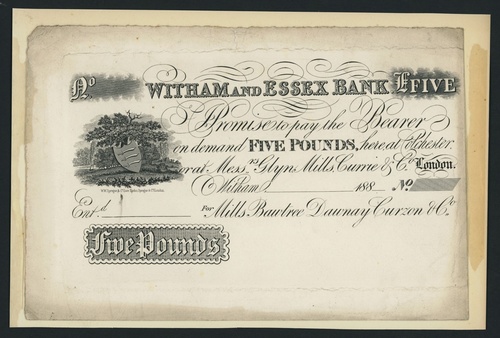 No WITHAM AND ESSEX BANK £FIVE
Promise to pay the Bearer
on demand FIVE POUNDS, here, at Colchester
or at Messrs. Glyn, Mills, Currie & Co. London.
Witham 188 No
Entd.
For Mills, Bawtree, Dawnay, Curzon & Co.
Five Pounds